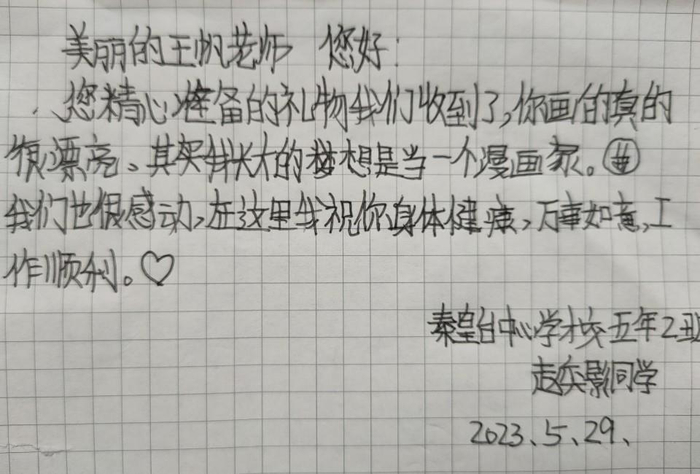 美丽的王帆老师 您好:
您精心准备的礼物我们收到了,你画的真的
很漂亮、其实我长大的梦想是当一个漫画家。
我们也很感动,在这里我祝你身体健康,万事如意,工
作顺利。♡
秦皇台中心学校五年2班
赵奕影同学
2023、5、29、